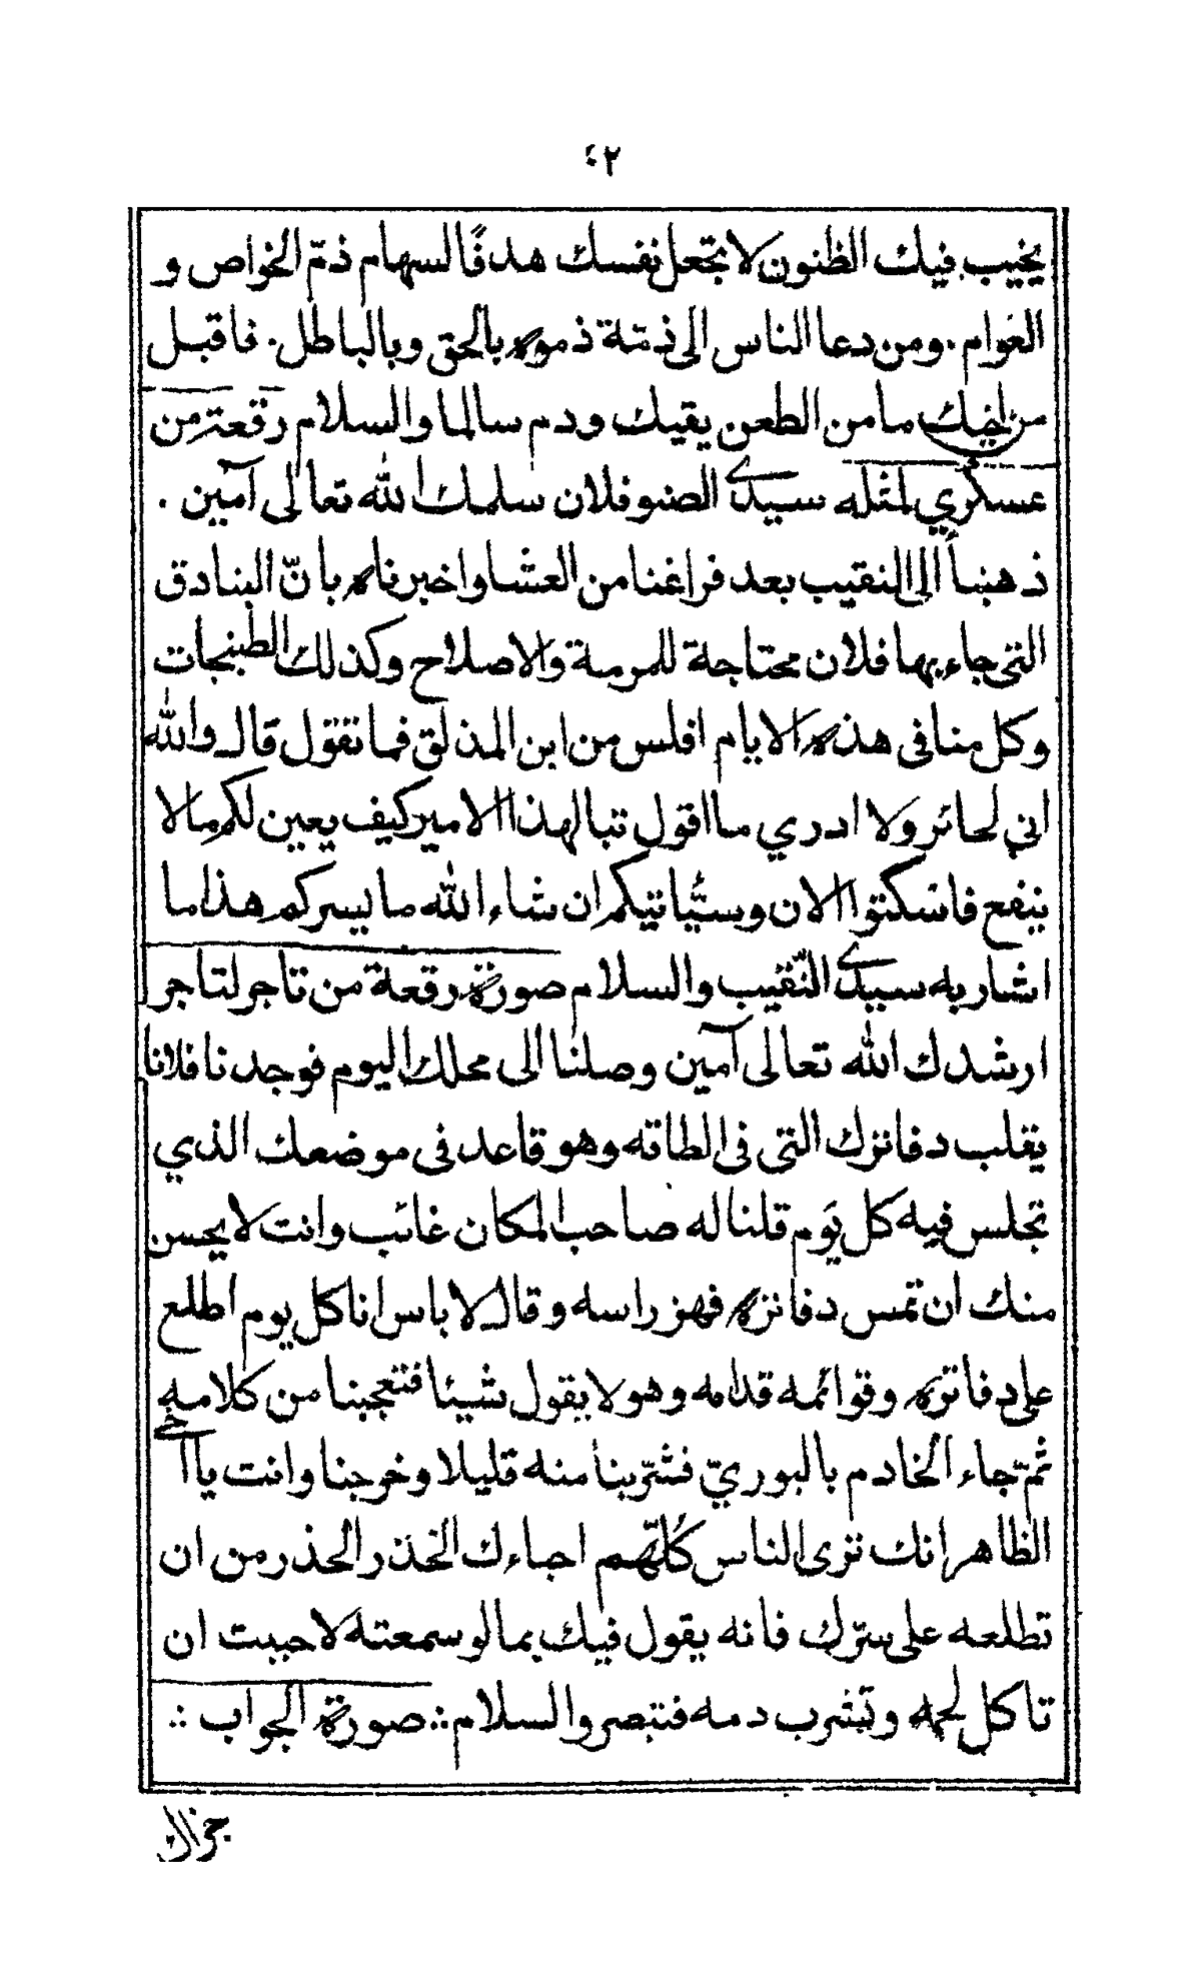 ٤٢
يخيب فيك الظنون لا تجعل نفسك هدفًا لسهام ذمّ الخواص و
العوام . ومن دعا الناس الى ذمّة ذموه بالحق وبالباطل . فاقبل
من اخيك ما من الطعن يقيك ودم سالما والسلام رقعة من
عسكري لمثله سيدي الصنو فلان سلمك الله تعالى آمين .
ذهبنا الى النقيب بعد فراغنا من العشا واخبرناه بانّ البنادق
التى جاء بها فلان محتاجة للمرمة والاصلاح وكذلك الطبنجات
وكل منا فى هذه الايام افلس من ابن المذلق فما تقول قال والله
اني لحائر ولا ادري ما اقول تبا لهذا الامير كيف يعين لكم ما لا
ينفع فاسكتوا الان وسيُّاتيكم ان شاء الله ما يسركم هذا ما
اشار به سيدي النّقيب والسلام صورة رقعة من تاجر لتاجر
ارشدك الله تعالى آمين وصلنا الى محلك اليوم فوجدنا فلانا
يقلب دفاترك التى فى الطاقه وهو قاعد فى موضعك الذي
تجلس فيه كل يَوم قلنا له صاحب المكان غائب وانت لا يحسن
منك ان تمس دفاتره فهز راسه وقال لا باس انا كل يوم اطلع
على دفاتره وقوائمه قدامه وهو لا يقول شيئا فتعجبنا من كلامه
ثمّ جاء الخادم بالبوريّ فشرّبنا منه قليلا وخرجنا وانت يا اخي
الظاهر انك ترى الناس كُلّهم احباءك الحذر الحذر من ان
تطلعه على سرّك فانه يقول فيك بما لو سمعته لاحببت ان
تاكل لحمه وتشرب دمه فتبصر والسلام ∴ صورة الجواب ∴
جزاك